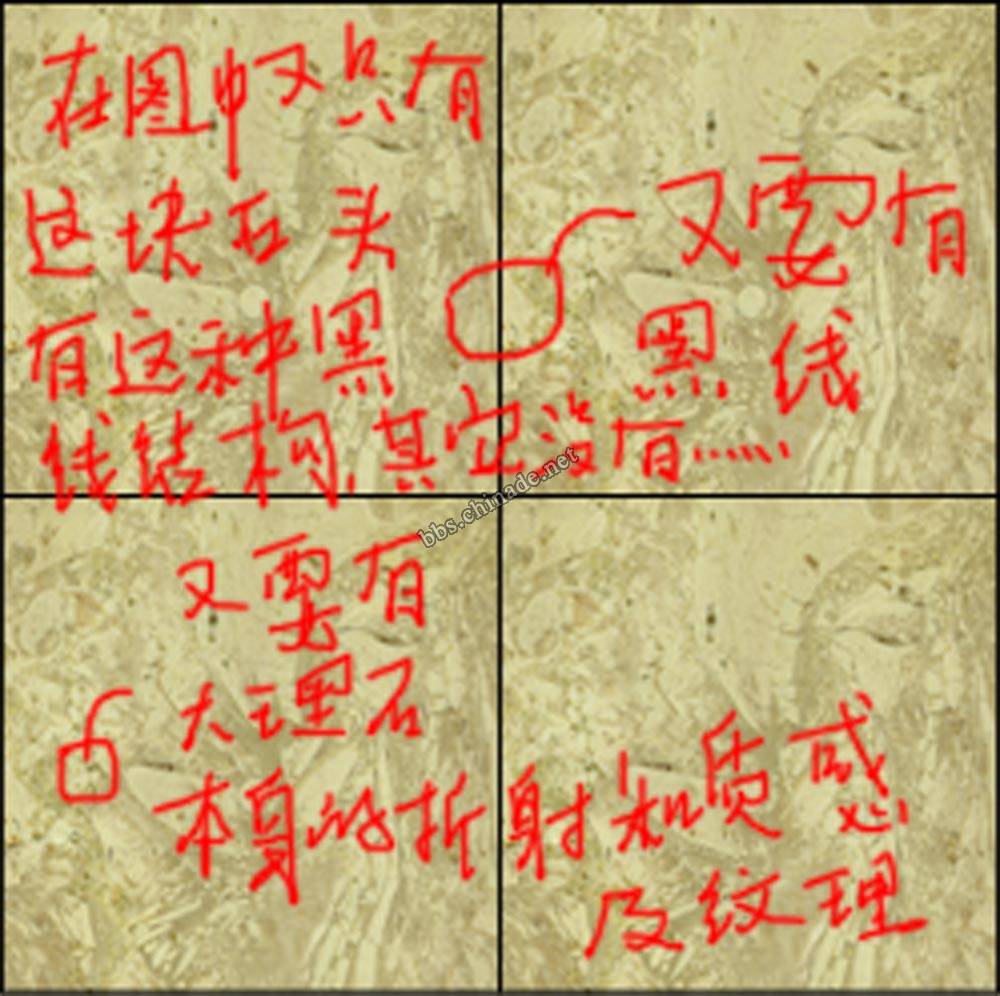 在图中又只有
这块石头
有这种黑
线结构.其它没有......
又要有
黑线
bbs.chinade.net
又要有
大理石
本身的折射和质感
及纹理